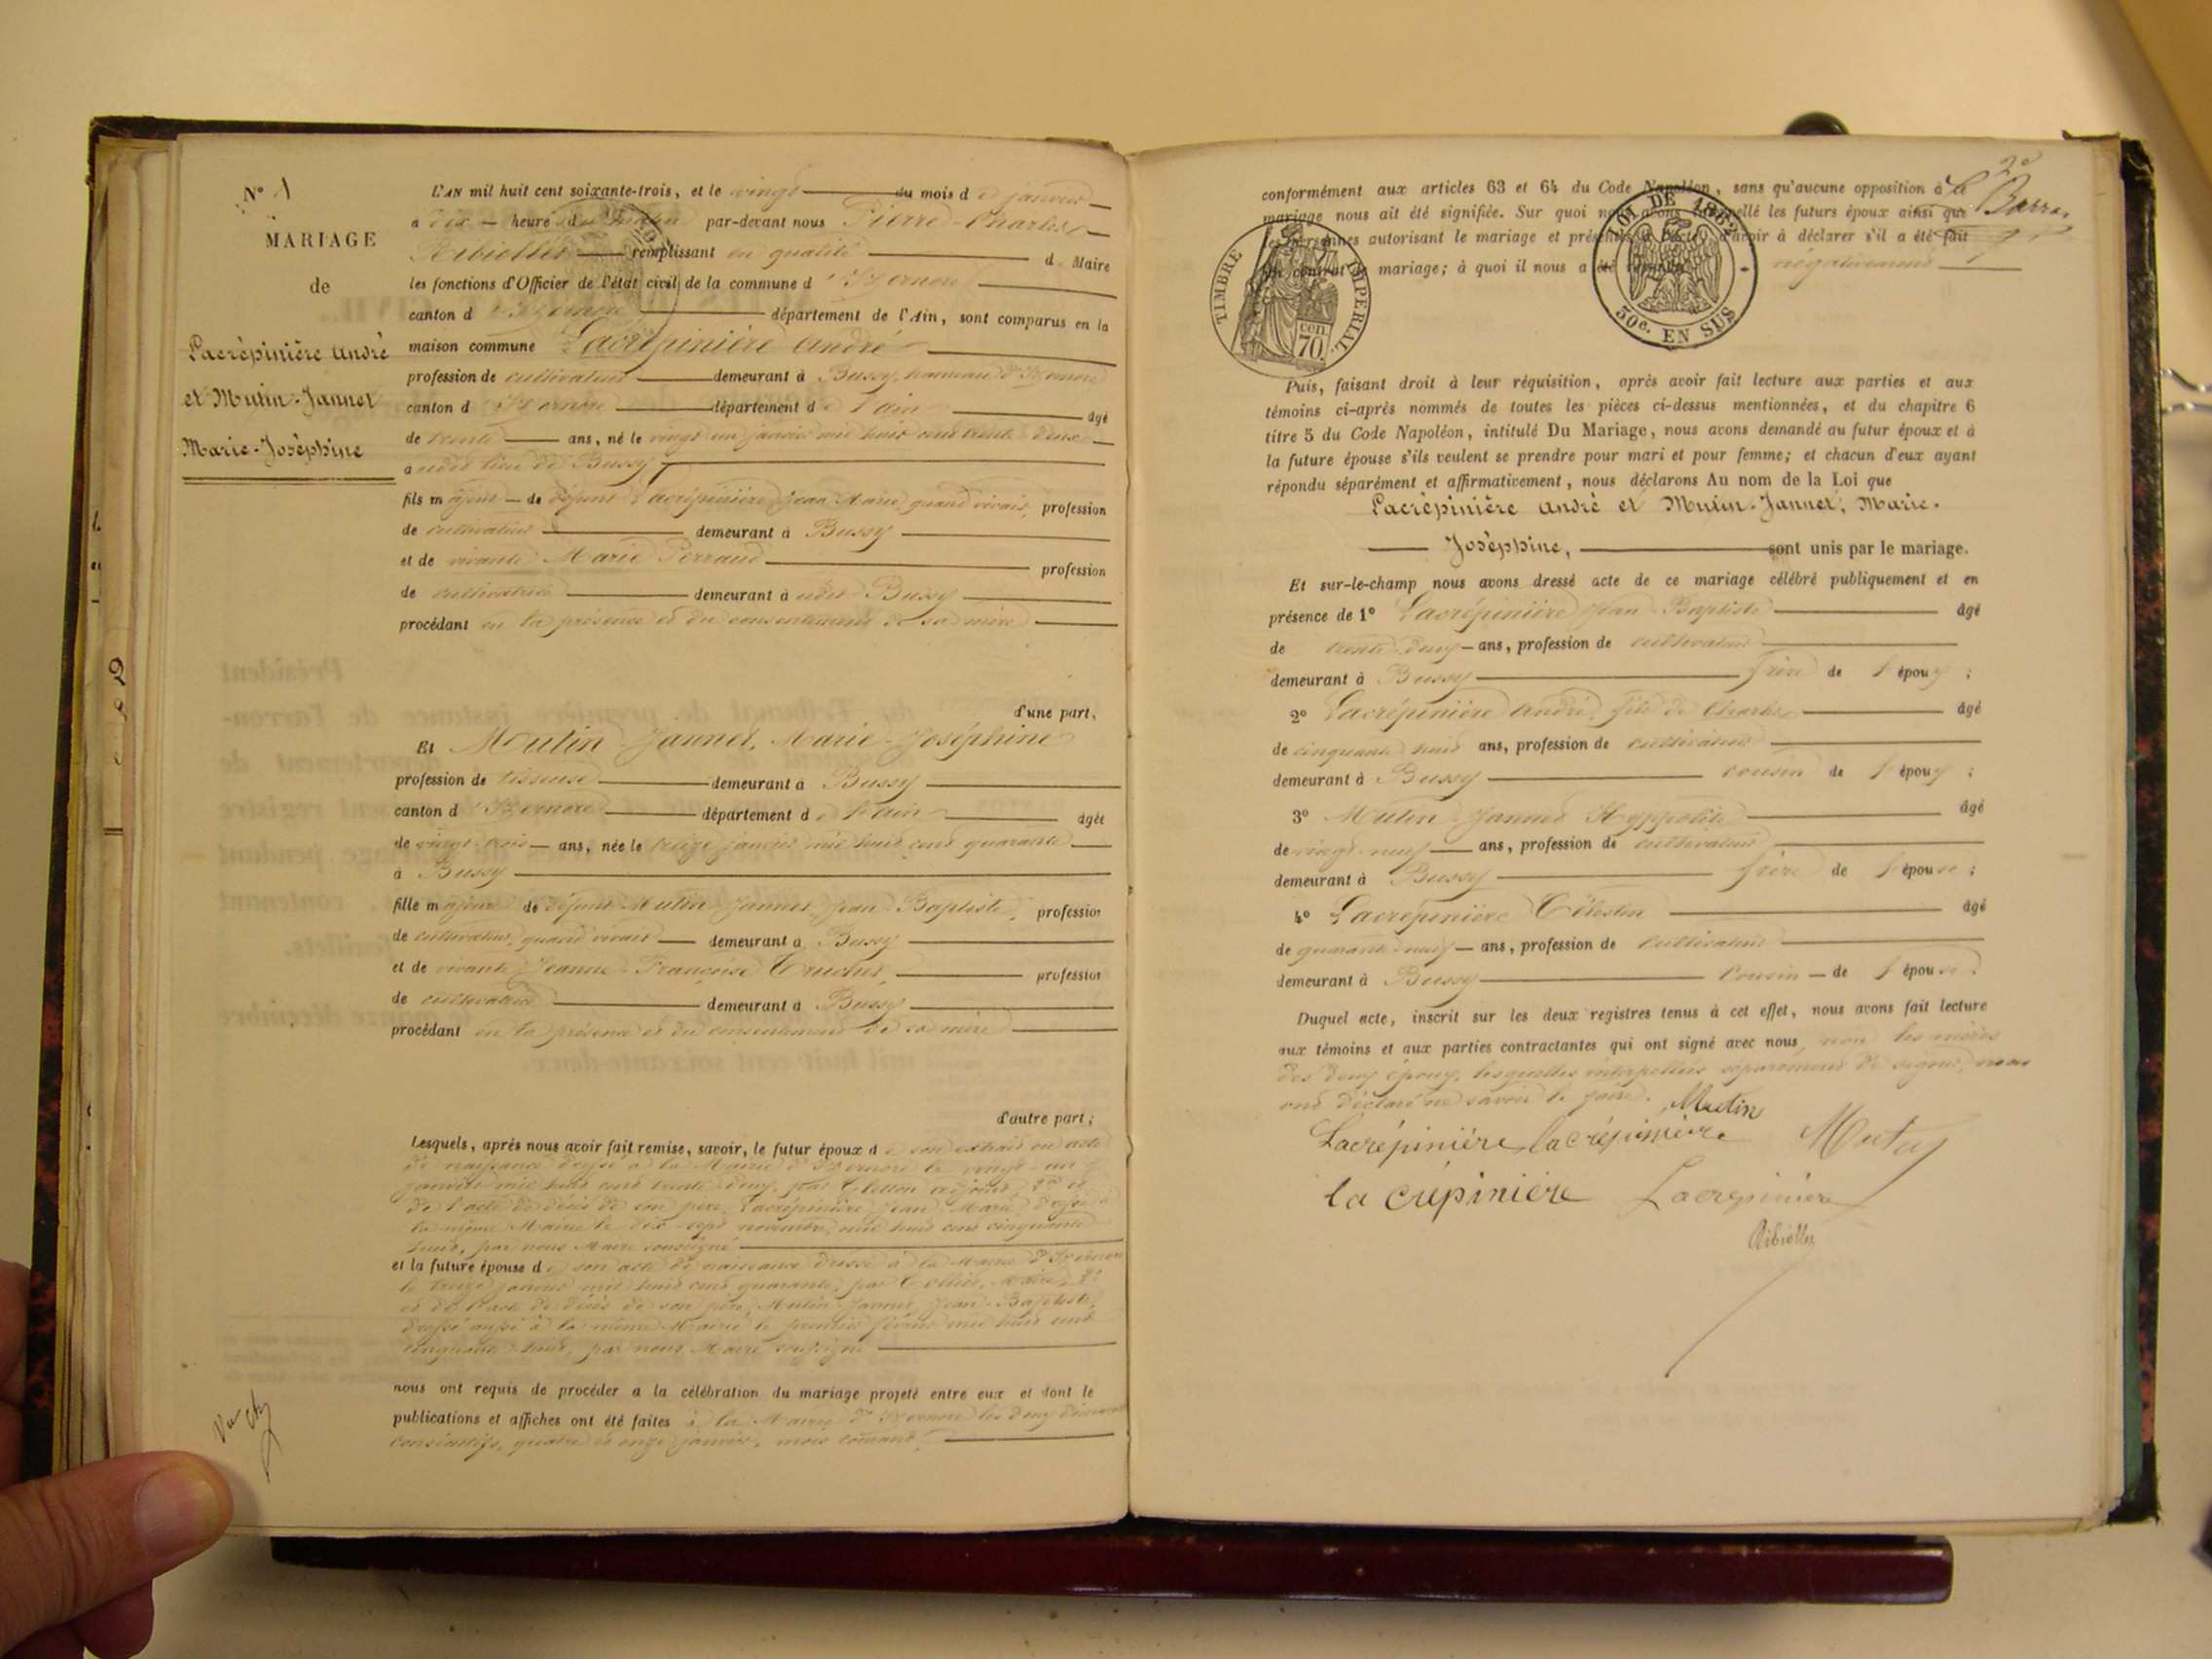 N° 1
MARIAGE
de
Lacrépinière André
et Mutin-Jannet
Marie-Joséphine
L'AN mil huit cent soixante-trois, et le vingt du mois de janvier
à dix heure du matin par-devant nous Pierre-Charles
Ribiollet remplissant en qualité de Maire
les fonctions d'Officier de l'état civil de la commune d'Izernore
canton d'Izernore département de l'Ain, sont comparus en la
maison commune Lacrépinière André
profession de cultivateur demeurant à Bussy, hameau d'Izernore
canton d'Izernore département de l'ain âgé
de trente ans, né le vingt un janvier mil huit cent trente deux
audit lieu de Bussy
fils majeur de défunt Lacrépinière Jean Marie, quand vivait, profession
de cultivateur demeurant à Bussy
et de vivante Marie Perraud profession
de cultivatrice demeurant à udit Bussy
procédant en la présence et du consentement de sa mère
d'une part,
Et Mutin-Jannet, Marie-Joséphine
profession de tisseuse demeurant à Bussy
canton d'Izernore département de l'ain âgée
de vingt-trois ans, née le treize janvier mil huit cent quarante
à Bussy
fille majeure de défunt Mutin Jannet Jean-Baptiste, profession
de cultivateur, quand vivait demeurant à Bussy
et de vivante Jeanne-Françoise profession
de demeurant à Bussy
procédant en la présence et du consentement de sa mère
d'autre part;
Lesquels, après nous avoir fait remise, savoir, le futur époux de son extrait ou acte
de naissance dressé à la Mairie d'Izernore le vingt-un
janvier mil huit cent trente-deux, par adjoint, 2° et
de l'acte de décès de son père, Lacrépinière Jean Marie dressé à
la même Mairie le dix-sept novembre mil huit cent cinquante
huit, par nous Maire soussigné
et la future épouse de son acte de naissance dressé à la Mairie d'Izernore
le treize janvier mil huit cent quarante, par Maire, 2°
et de l'acte de décès de son père, Mutin-Jannet, Jean-Baptiste,
dressé aussi à la même Mairie le premier février mil huit cent
cinquante-huit, par nous Maire soussigné
nous ont requis de procéder a la célébration du mariage projeté entre eux et dont le
publications et affiches ont été faites à la Mairie d'Izernore les deux dimanches
consécutifs, quatre et onze janvier, mois courant,
conformément aux articles 63 et 64 du Code Napoléon, sans qu'aucune opposition à le
mariage nous ait été signifiée. Sur quoi nous avons interpellé les futurs époux ainsi que
les personnes autorisant le mariage et présentes à l'acte, d'avoir à déclarer s'il a été fait
un contrat de mariage; à quoi il nous a été répondu négativement
TIMBRE IMPERIAL
cen. 70.
LOI DE 1862
50c. EN SUS
Puis, faisant droit à leur réquisition, après avoir fait lecture aux parties et aux
témoins ci-après nommés de toutes les pièces ci-dessus mentionnées, et du chapitre 6
titre 5 du Code Napoléon, intitulé Du Mariage, nous avons demandé au futur époux et à
la future épouse s'ils veulent se prendre pour mari et pour femme; et chacun d'eux ayant
répondu séparément et affirmativement, nous déclarons Au nom de la Loi que
Lacrépinière andré et Mutin-Jannet, Marie-
Joséphine, sont unis par le mariage.
Et sur-le-champ nous avons dressé acte de ce mariage célébré publiquement et en
présence de 1° Lacrépinière Jean-Baptiste âgé
de trente-deux ans, profession de cultivateur
demeurant à Bussy frère de l'époux;
2° Lacrépinière André, fils de Charles âgé
de cinquante huit ans, profession de cultivateur
demeurant à Bussy cousin de l'époux;
3° Mutin Jannet Hyppolite âgé
de vingt-neuf ans, profession de cultivateur
demeurant à Bussy frère de l'épouse;
4° Lacrépinière Célestin âgé
de quarante-neuf ans, profession de cultivateur
demeurant à Bussy Cousin de l'épouse.
Duquel acte, inscrit sur les deux registres tenus à cet effet, nous avons fait lecture
aux témoins et aux parties contractantes qui ont signé avec nous, non les mères
des deux époux, lesquelles interpellées séparément de signer, nous
ont déclaré ne savoir le faire.
Mutin
Lacrépinière lacrépinière
la crépinière Lacrepinière
Ribiollet